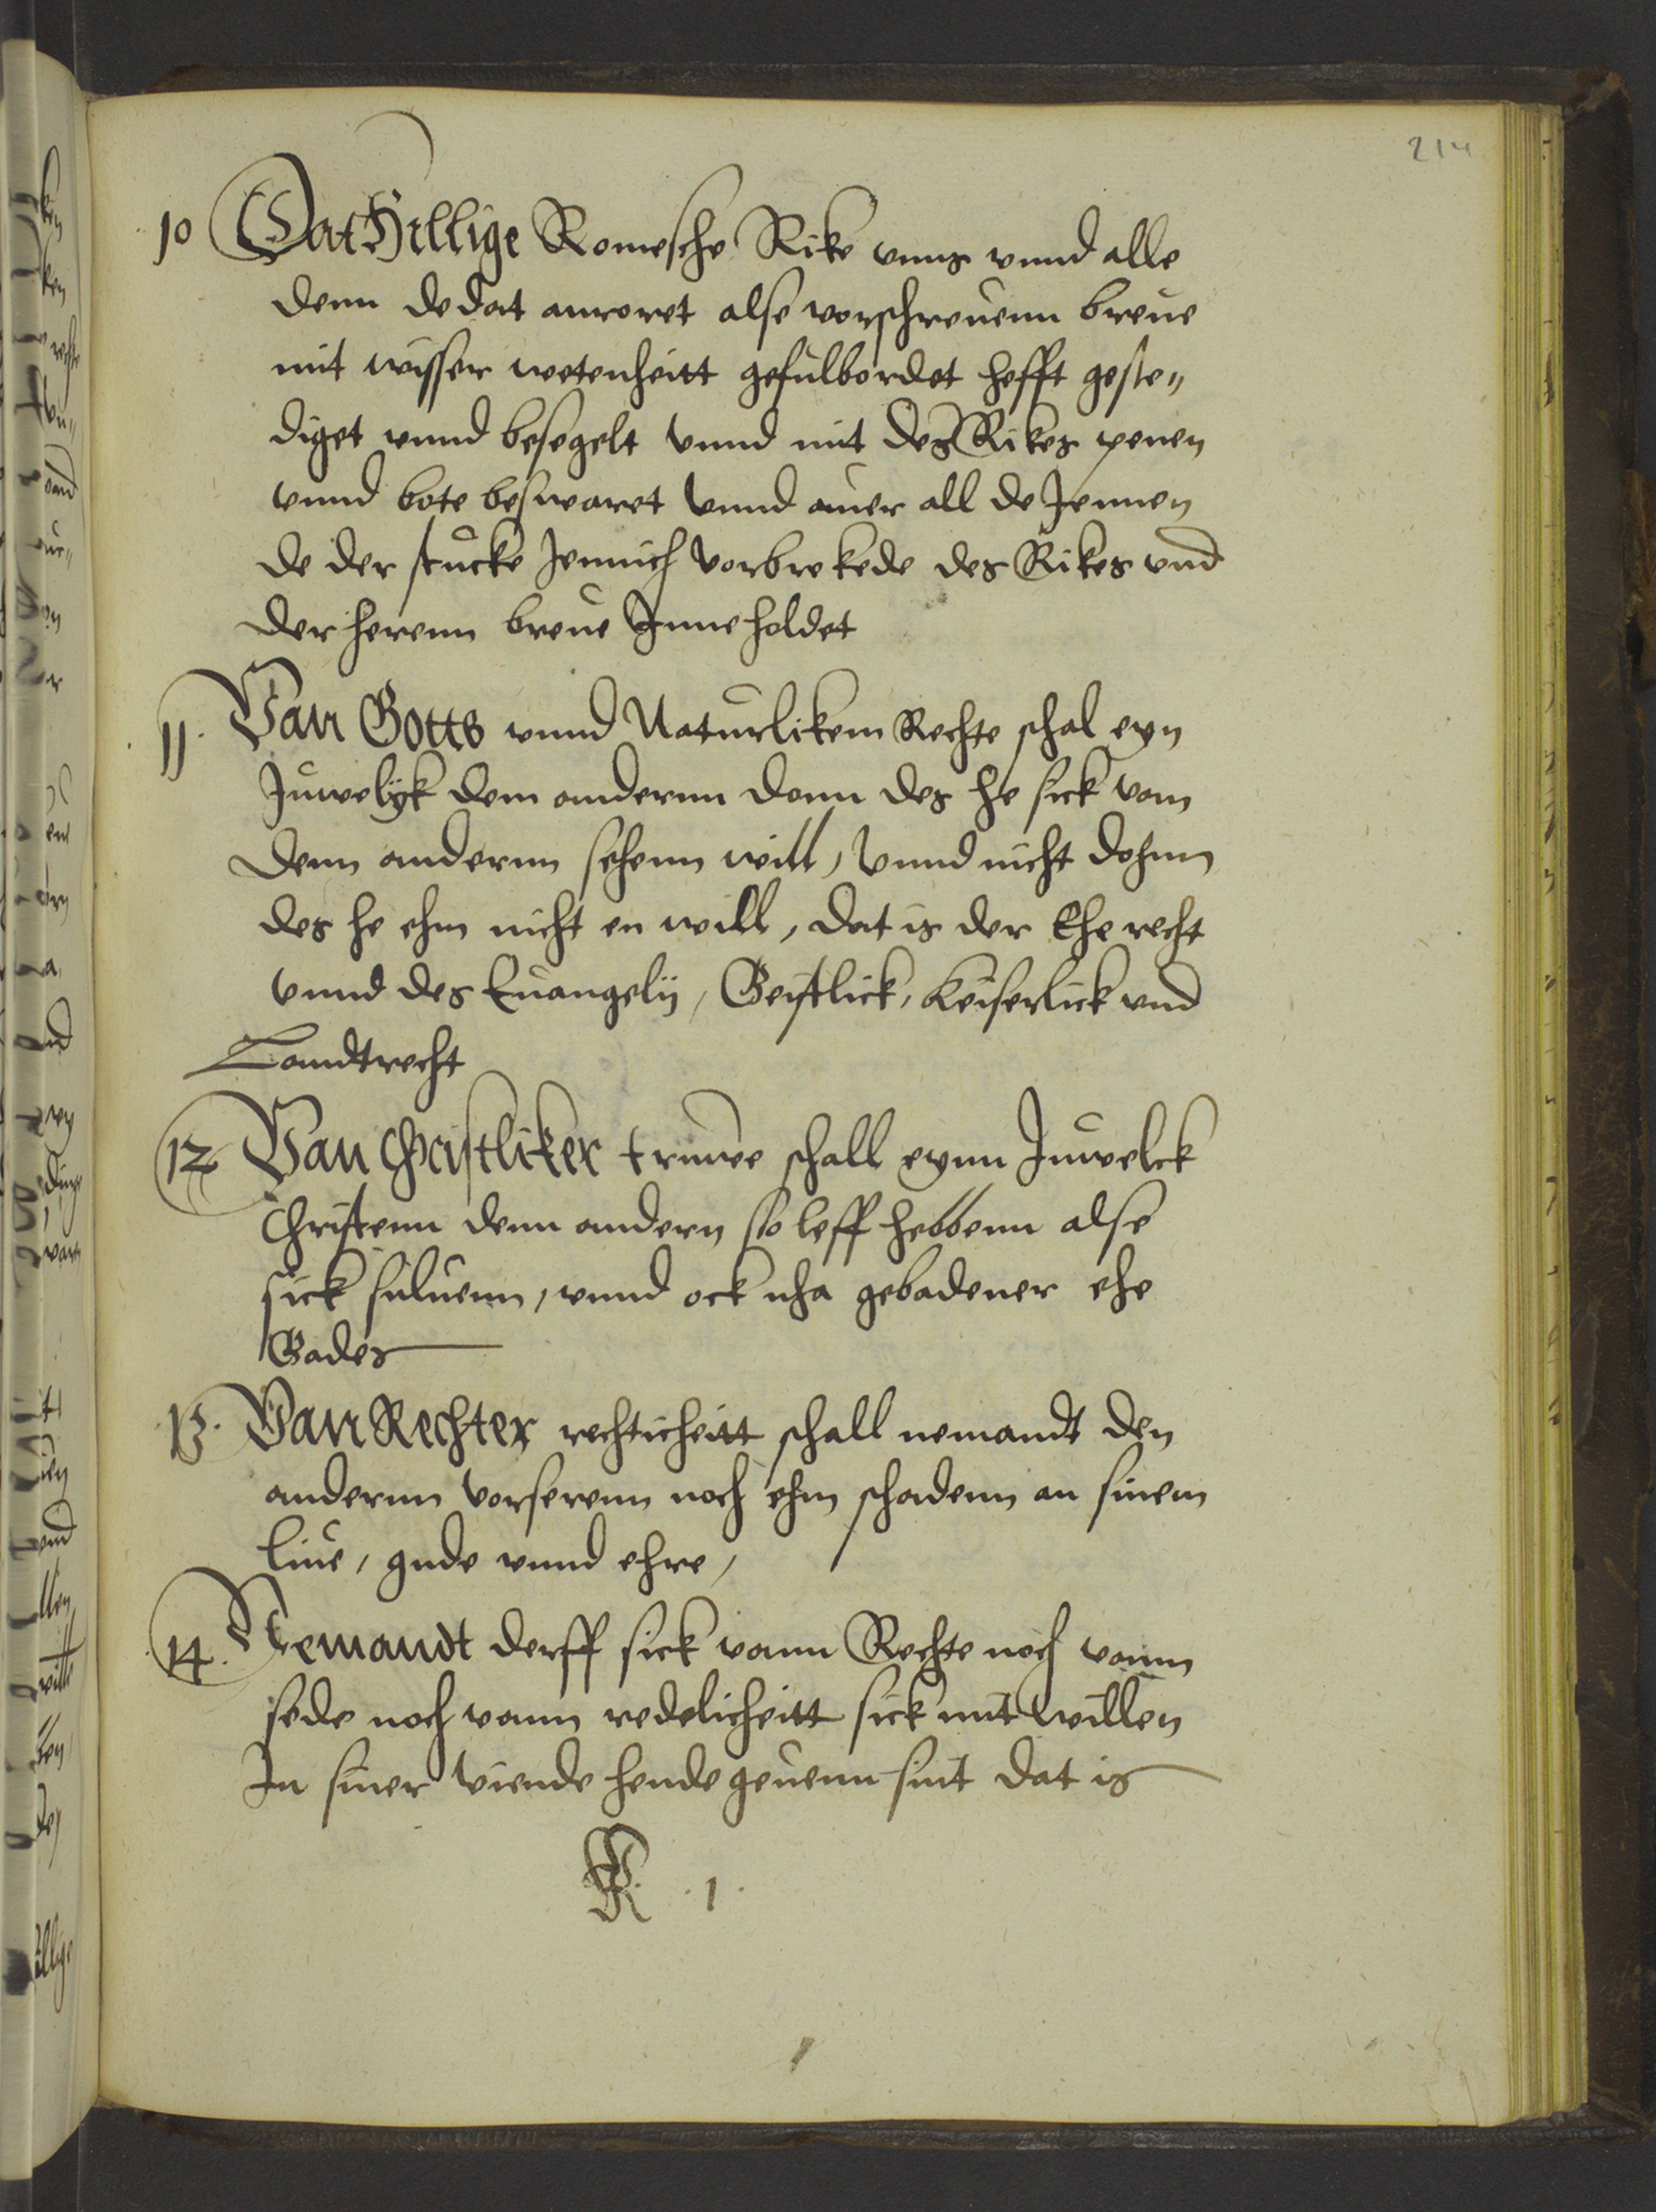 214
10 Dat Hillige Romesche Rike vnns vnnd alle
denn de dat anroret alse vorschreuenn breue
mit wisser wetenheitt gefulbordet hefft geste„
diget vnnd besegelt vnnd mit des Rikes penen
vnnd bote beswaret vnnd auer all de Jennen
de der stucke Jennich vorbrekede des Rikes vnd
der herenn breue Inneholdet
11. Van Gotts vnnd Naturlikem Rechte schal eyn
Juwelyk dem andernn donn des he sick vam
denn andernn sehenn will, vnnd nicht dohnn
des he ehm nicht en will, dat is der Ehe recht
vnnd des Euangelij, Geistlick, Keiserlick vnd
Landtrecht
12 Van Christliker truwe schall eynn Juwelck
Christenn denn andern so leff hebbenn alse
sick suluenn, vnnd ock nha gebadener ehe
Gades
13. Van Rechter rechticheitt schall nemandt den
andernn vorserenn noch ehm schadenn an sinem
liue, gude vnnd ehre,
14. Nemandt derff sick vann Rechte noch vann
sede noch vann redelicheitt sick mit willen
In siner viende hende geuenn sint dat is
R .1.